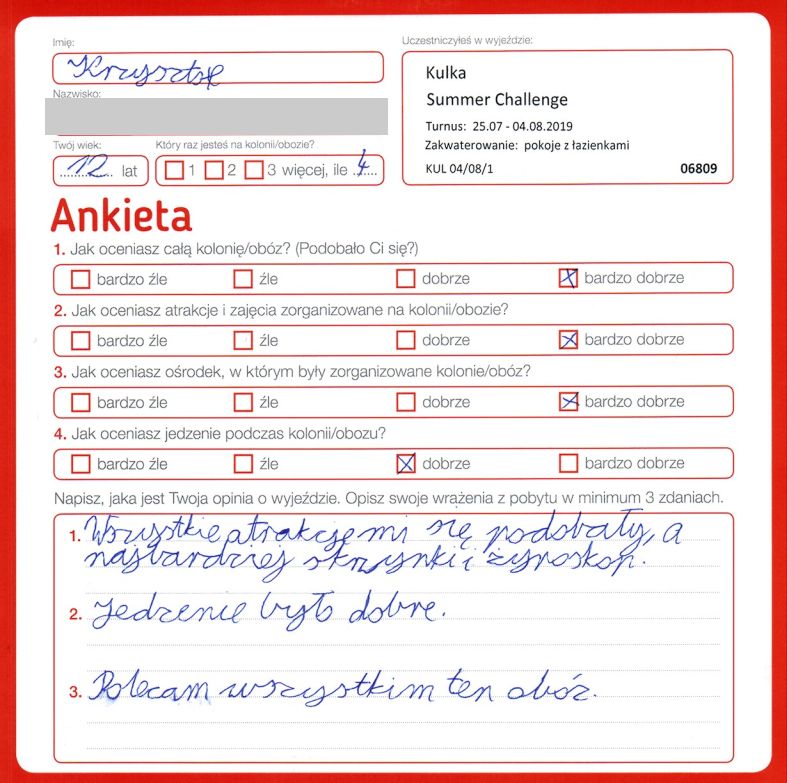 Imię:
Krzysztof
Nazwisko:
Twój wiek:
12 lat
Który raz jesteś na kolonii/obozie?
1 2 3 więcej, ile 4
Uczestniczyłeś w wyjeździe:
Kulka
Summer Challenge
Turnus: 25.07 - 04.08.2019
Zakwaterowanie: pokoje z łazienkami
KUL 04/08/1 06809
Ankieta
1. Jak oceniasz całą kolonię/obóz? (Podobało Ci się?)
bardzo źle źle dobrze bardzo dobrze
2. Jak oceniasz atrakcje i zajęcia zorganizowane na kolonii/obozie?
bardzo źle źle dobrze bardzo dobrze
3. Jak oceniasz ośrodek, w którym były zorganizowane kolonie/obóz?
bardzo źle źle dobrze bardzo dobrze
4. Jak oceniasz jedzenie podczas kolonii/obozu?
bardzo źle źle dobrze bardzo dobrze
Napisz, jaka jest Twoja opinia o wyjeździe. Opisz swoje wrażenia z pobytu w minimum 3 zdaniach.
1. Wszystkie atrakcje mi się podobały, a
najbardziej skrzynki i żyroskop.
2. Jedzenie było dobre.
3. Polecam wszystkim ten obóz.